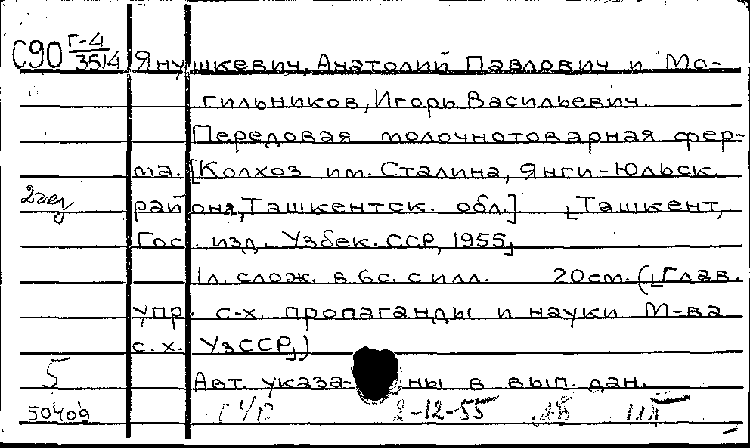 С90 Г-4/3514 Янушкевич, Анатолий Павлович и Мо-
гильников, Игорь Васильевич.
Передовая молочнотоварная фер-
ма. [Колхоз им. Сталина, Янги-Юльск.
района, Ташкентск. обл.] [Ташкент,
Гос. изд. Узбек. ССР, 1955]
1 л. слож. в 6 с. с илл. 20 см. ([Глав.
упр. с-х. пропаганды и науки М-ва
с. х. УзССР])
5 Авт. указаны в вып. дан.
50409 2-12-55